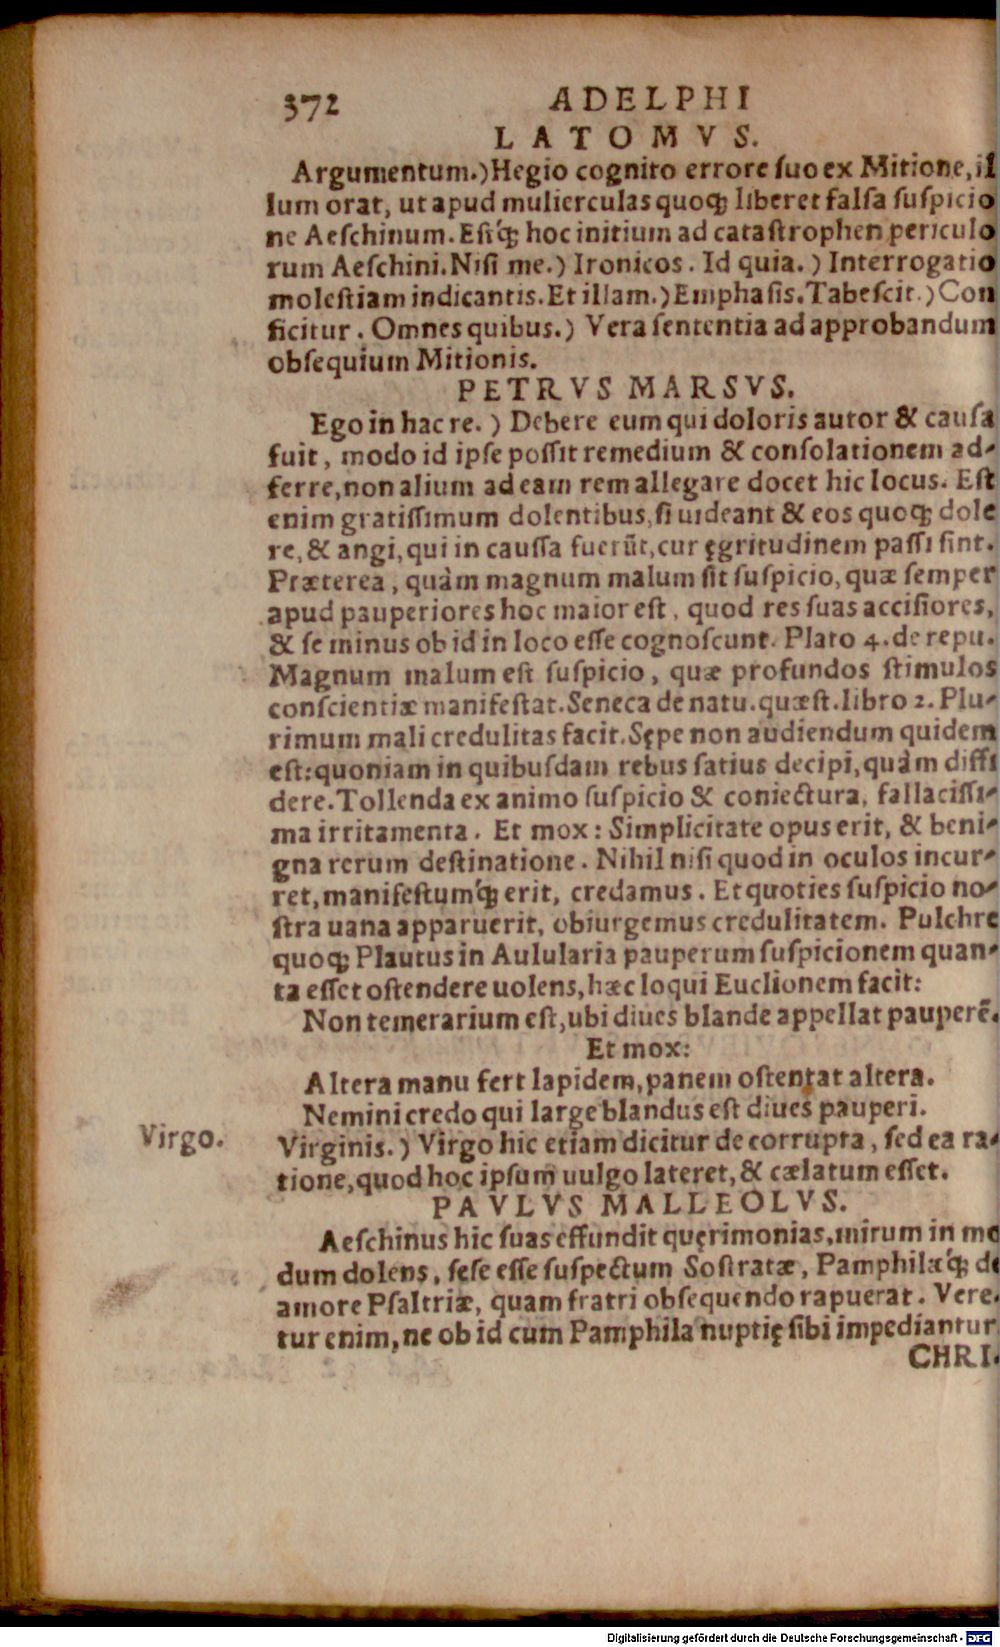 372 ADELPHI
LATOMVS.
Argumentum.) Hegio cognito errore ſuo ex Mitione, il
lum orat, ut apud mulierculas quoq; liberet falſa ſuſpicio
ne Aeſchinum. Eſtq́; hoc initium ad cataſtrophen periculo
rum Aeſchini. Niſi me.) Ironicos. Id quia.) Interrogatio
moleſtiam indicantis. Et illam.) Emphaſis. Tabeſcit.) Con
ficitur. Omnes quibus.) Vera ſententia ad approbandum
obſequium Mitionis.
PETRVS MARSVS.
Ego in hac re.) Debere eum qui doloris autor & cauſa
fuit, modo id ipſe poſſit remedium & conſolationem ad-
ferre, non alium ad eam rem allegare docet hic locus. Eſt
enim gratiſſimum dolentibus, ſi uideant & eos quoq; dole
re, & angi, qui in cauſſa fuerũt, cur ęgritudinem paſſi ſint.
Præterea, quàm magnum malum ſit ſuſpicio, quæ ſemper
apud pauperiores hoc maior eſt, quod res ſuas acciſiores,
& ſe minus ob id in loco eſſe cognoſcunt. Plato 4. de repu.
Magnum malum eſt ſuſpicio, quæ profundos ſtimulos
conſcientiæ manifeſtat. Seneca de natu. quæſt. libro 2. Plu-
rimum mali credulitas facit. Sępe non audiendum quidem
eſt: quoniam in quibuſdam rebus ſatius decipi, quàm diffi
dere. Tollenda ex animo ſuſpicio & coniectura, fallaciſſi-
ma irritamenta. Et mox: Simplicitate opus erit, & beni-
gna rerum deſtinatione. Nihil niſi quod in oculos incur-
ret, manifeſtumq́; erit, credamus. Et quoties ſuſpicio no-
ſtra uana apparuerit, obiurgemus credulitatem. Pulchre
quoq; Plautus in Aulularia pauperum ſuſpicionem quan-
ta eſſet oſtendere uolens, hæc loqui Euclionem facit:
Non temerarium eſt, ubi diues blande appellat pauperẽ.
Et mox:
Altera manu fert lapidem, panem oſtentat altera.
Nemini credo qui large blandus eſt diues pauperi.
Virgo. Virginis.) Virgo hic etiam dicitur de corrupta, ſed ea ra-
tione, quod hoc ipſum uulgo lateret, & cælatum eſſet.
PAVLVS MALLEOLVS.
Aeſchinus hic ſuas effundit quęrimonias, mirum in mo
dum dolens, ſeſe eſſe ſuſpectum Soſtratæ, Pamphilæq́; de
amore Pſaltriæ, quam fratri obſequendo rapuerat. Vere-
tur enim, ne ob id cum Pamphila nuptię ſibi impediantur
CHRI-
Digitalisierung gefördert durch die Deutsche Forschungsgemeinschaft - DFG